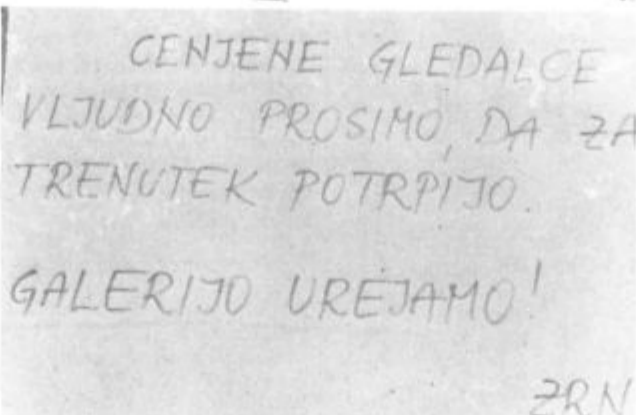 CENJENE GLEDALCE
VLJUDNO PROSIMO, DA ZA
TRENUTEK POTRPIJO.
GALERIJO UREJAMO!
ZRN